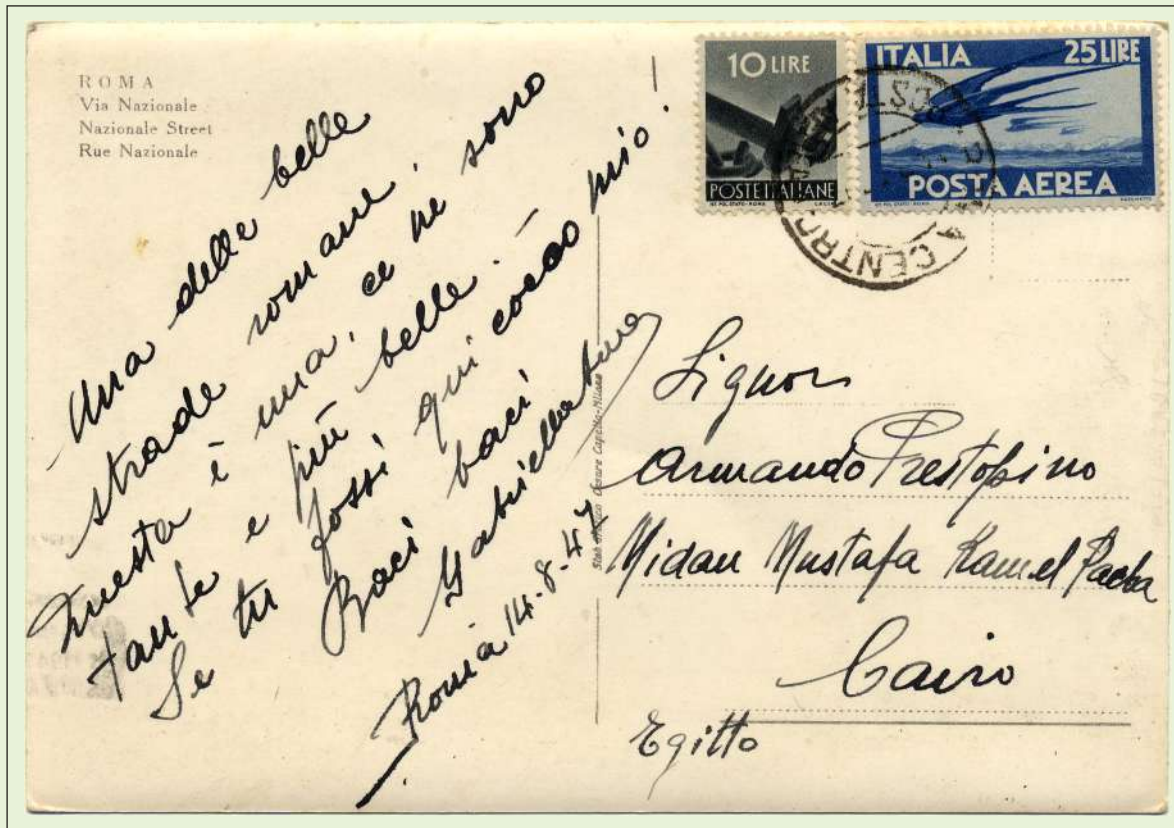 ROMA
Via Nazionale
Nazionale Street
Rue Nazionale
Una delle belle
strade romane.
Questa è una, ce ne sono
tante e più belle.
Se tu fossi qui cocco mio!
Baci baci
Gabriella tua
Roma 14-8-47
10 LIRE
POSTE ITALIANE
ITALIA 25 LIRE
POSTA AEREA
CENTRO
Signor
Armando Prestopino
Midan Mustafa Kamel Pacha
Cairo
Egitto